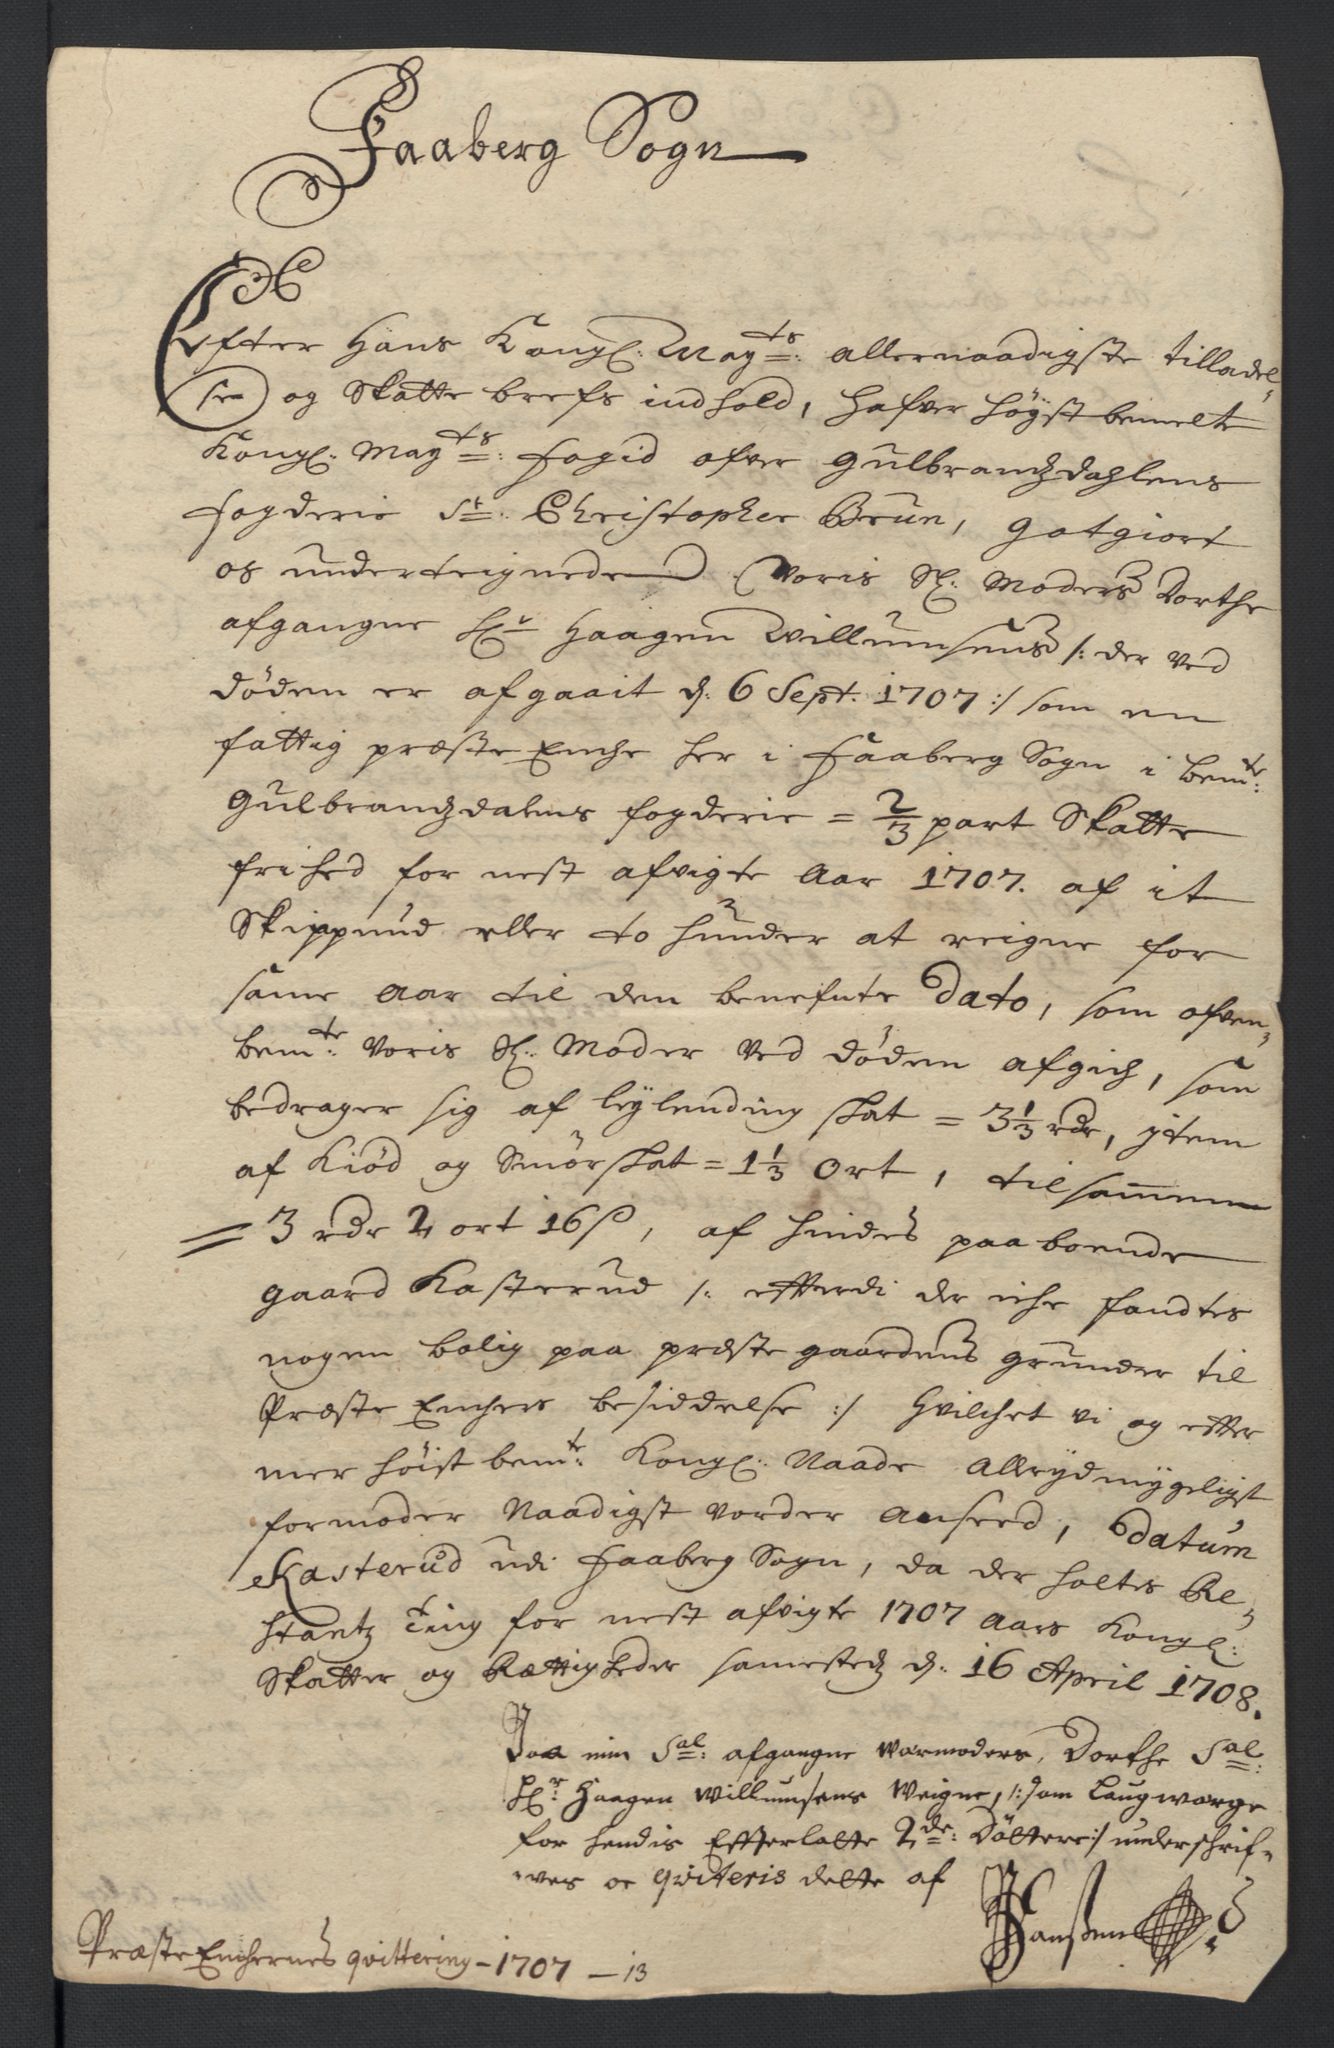 Faaberg Sogn
Efter Hans Kongl: May<sup>ts</sup>: allernaadigste tilladel-
se og Skatte brefs indhold, hafver høyst bemelte
Kongl: May<sup>ts</sup>: fogid ofver Gulbrandzdahlens
fogderie S<sup>r</sup>: Christopher Brun, gotgiort
os underteignede Voris Sl: Moders Dorthe
afgangne Hr Haagen Willumsens /: der ved
døden er afgaait d: 6 Sept: 1707 :/ som en
fattig præste Enche her i Faaberg Sogn i bem<sup>te</sup>:
Gulbrandzdalens fogderie = 2/3 part Skatte
frihed for nest afvigte Aar 1707. af it
Skippund eller to hunder at reigne for
same Aar til den benefnte Dato, som ofven-
bem<sup>te</sup>: Voris Sl: Moder Ved døden afgich, som
bedrager sig af leylending skat = 3 1/3 rdr, jtem
af Kiød og Smørskat = 1 1/3 ort, tilsammen
= 3 rdr 2 ort 16 s, af hindes paaboende
gaard Kasterud /: efterdi der iche fandtes
nogen bolig paa præste gaardens grunder til
Præste Enchers besiddelse :/ Hvilchet vi og efter
mer høist bem<sup>te</sup>: Kongl: Naade Allerydmygeligst
formoder Naadigst vorder anseed, Datum
Kasterud udi Faaberg Sogn, da der holtes Re-
stantz Ting for nest afvigte 1707 Aars Kongl:
Skatter og Rettigheder samestedz d: 16 April 1708.
Paa min Sal: afgangne Warmoders, Dorthe Sal:
Hr: Haagen Willumsens Weigne, /: som Laugwerge
for hendis Efterlatte 2<sup>de</sup>: Døttere :/ underschrif-
wes oc qviteris dette af
Hanssen
Præste Enchernes qvittering - 1707 - 13